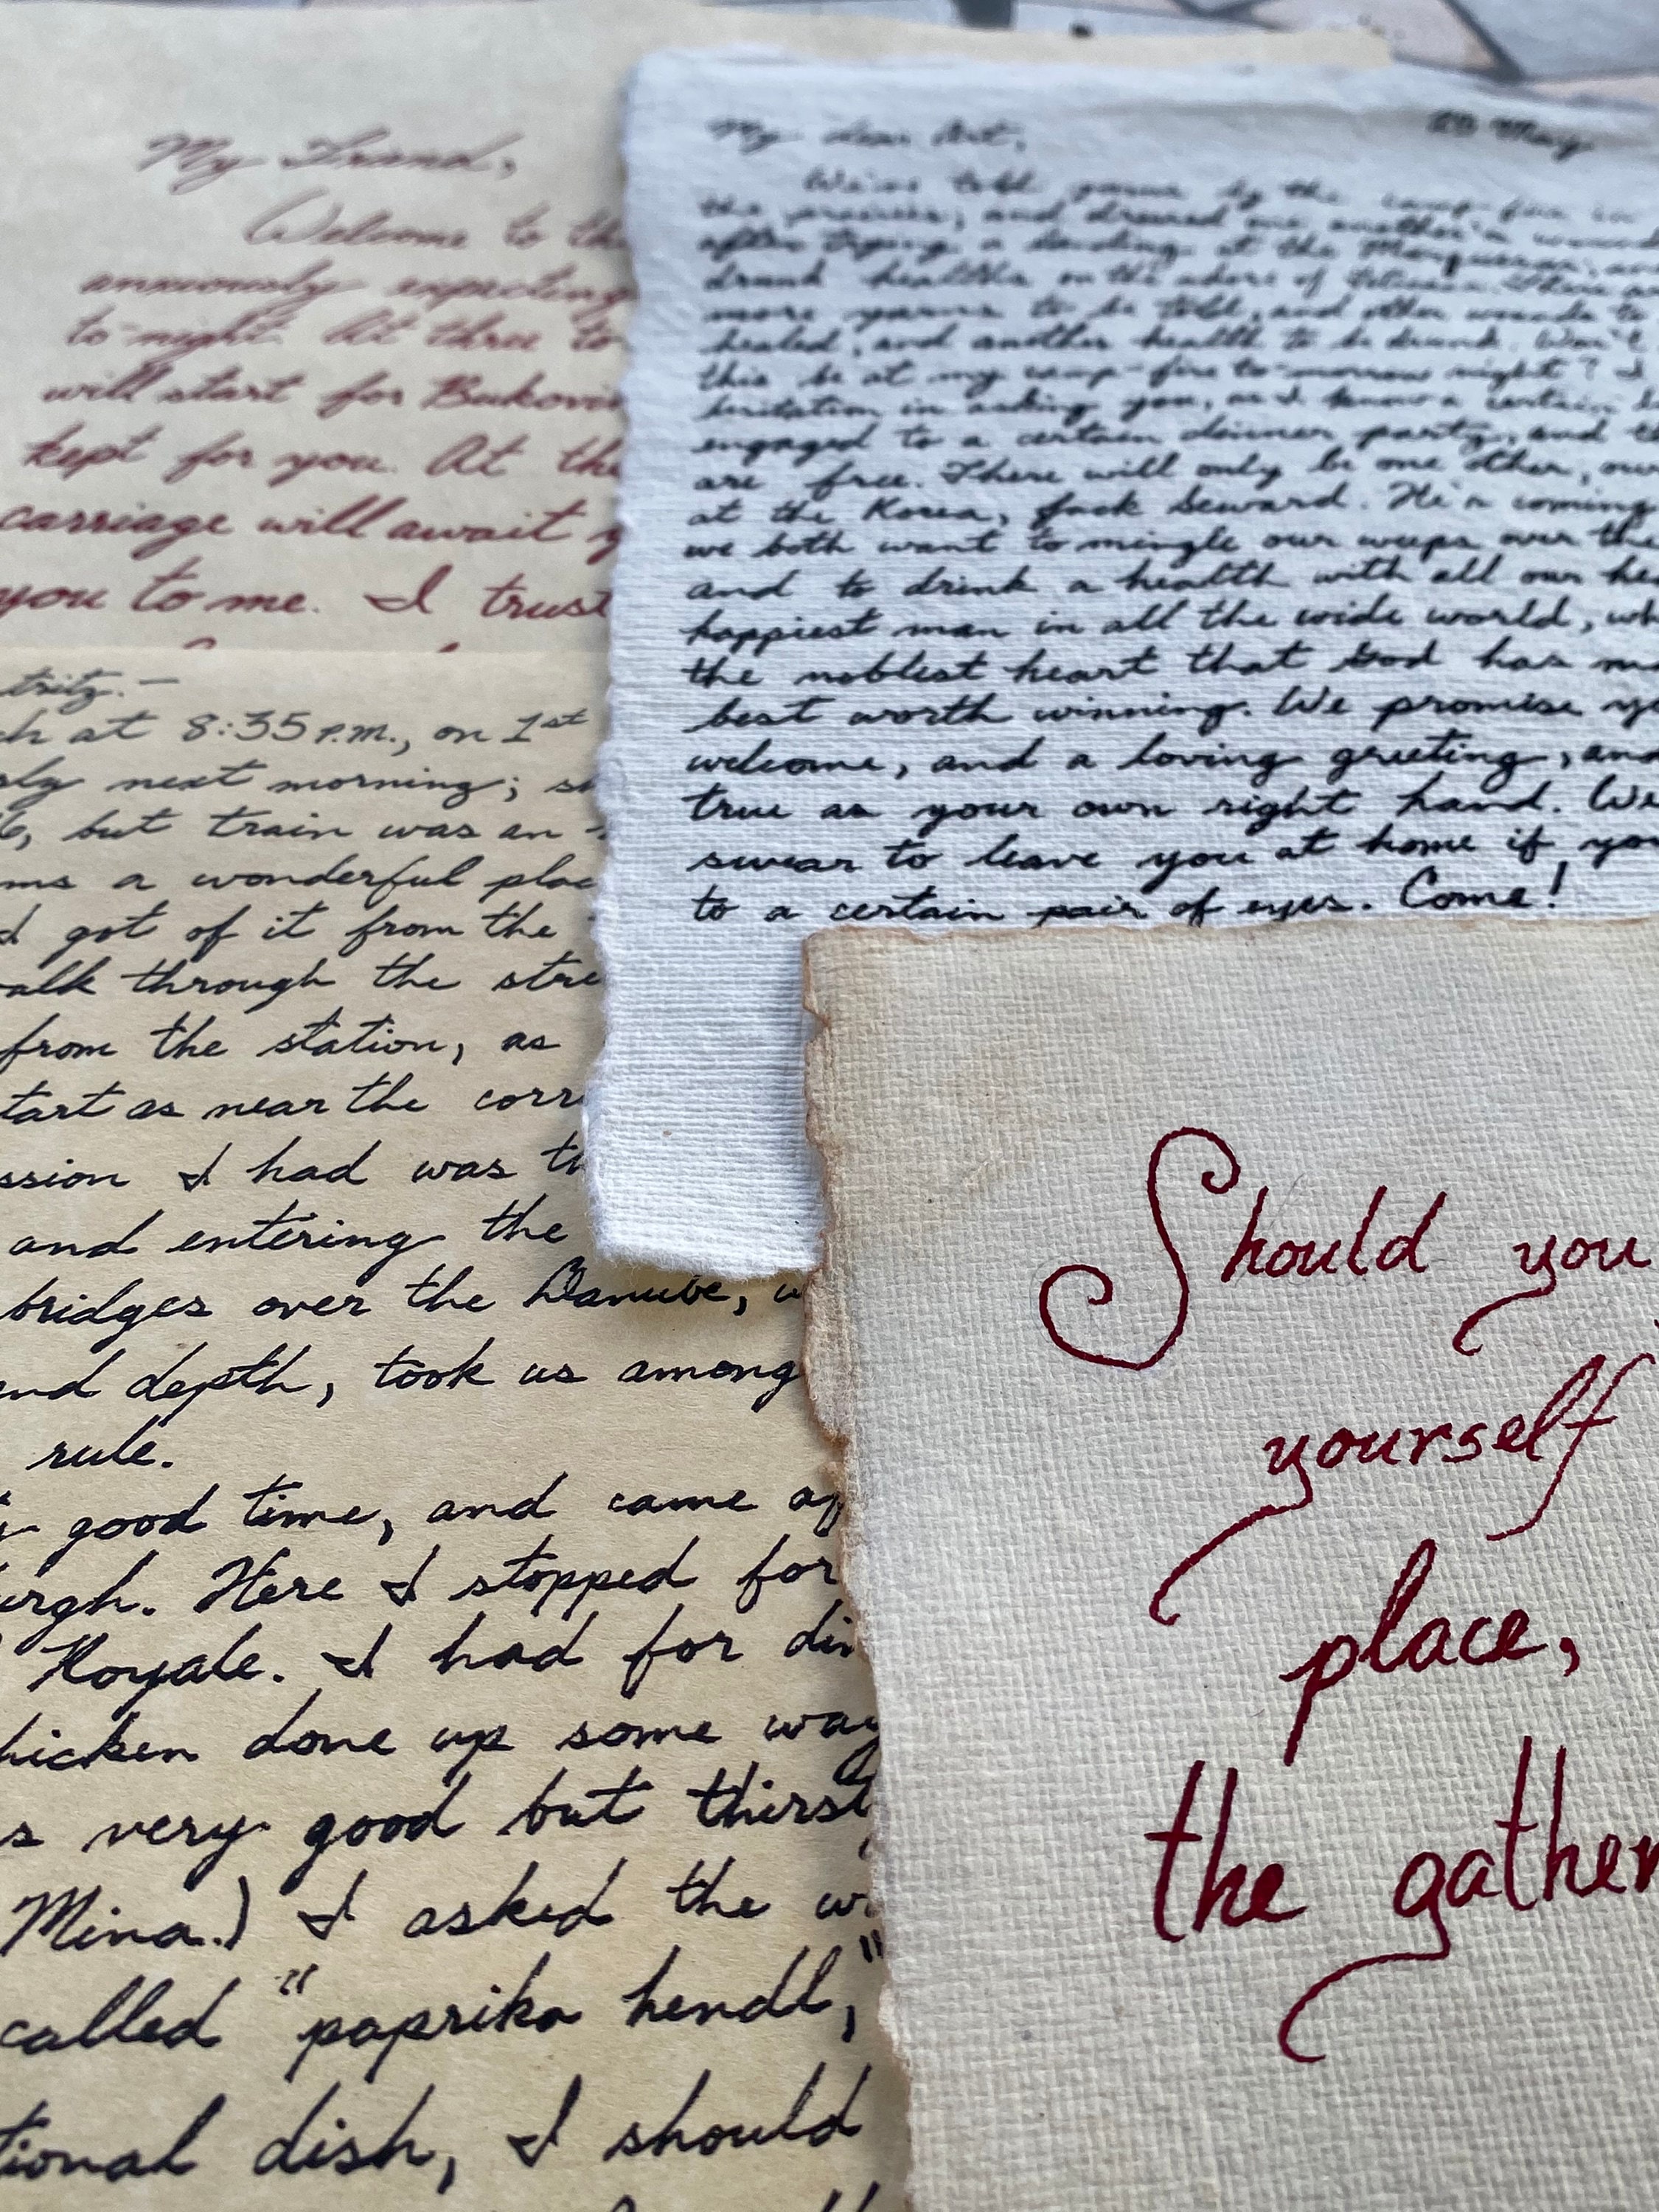 My Friend,
Welcome to the
anxiously expecting
to-night. At three to
will start for Bukovi
kept for you. At the
carriage will await y
you to me. I trust
My dear Art,
25 May
We've told yarns by the camp-fire in
the prairies; and dressed one another's wounds
after trying a landing at the Marquesas; and
drunk healths on the shore of Titicaca. There are
more yarns to be told, and other wounds to
healed, and another health to be drunk. Won't
this be at my camp-fire to-morrow night? I
hesitation in asking you, as I know a certain
engaged to a certain dinner party, and
are free. There will only be one other, our
at the Korea, Jack Seward. He's coming
we both want to mingle our weeps over the
and to drink a health with all our hea
happiest man in all the wide world, wh
the noblest heart that God has ma
best worth winning. We promise yo
welcome, and a loving greeting, and
true as your own right hand. We
swear to leave you at home if you
to a certain pair of eyes. Come!
tritz.—
ch at 8:35 P.M., on 1st
rly next morning; sh
6, but train was an
ms a wonderful plac
I got of it from the
alk through the stre
from the station, as
tart as near the corr
ssion I had was th
and entering the
bridges over the Danube, w
and depth, took us among
rule.
good time, and came af
urgh. Here I stopped for
Royale. I had for din
hicken done up some way
s very good but thirst
Mina.) I asked the w
called "paprika hendl,"
tional dish, I should
Should you
yourself
place,
the gather